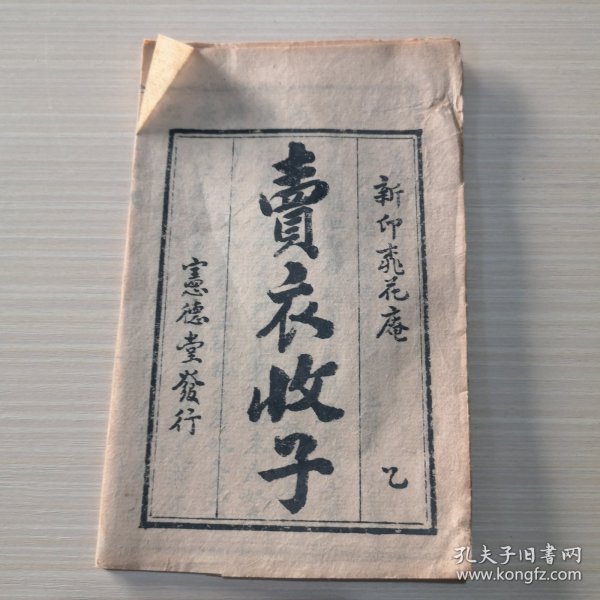 新印桃花庵 乙
賣衣收子
憲德堂發行
孔夫子旧书网
www.kongfz.com